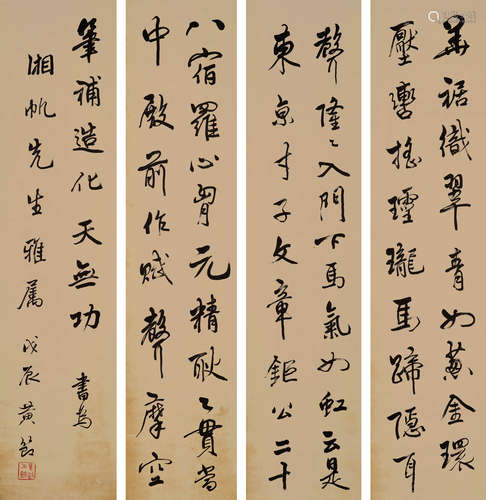 華裾織翠青如蔥金環
壓轡搖瓏馬蹄隱耳
聲隆〻入門下馬氣如虹云是
東京才子文章鉅公二十
八宿羅心胷元精耿〻貫當
中殿前作賦聲摩空
筆補造化天無功 書為
湘帆先生雅屬 戊辰黃節